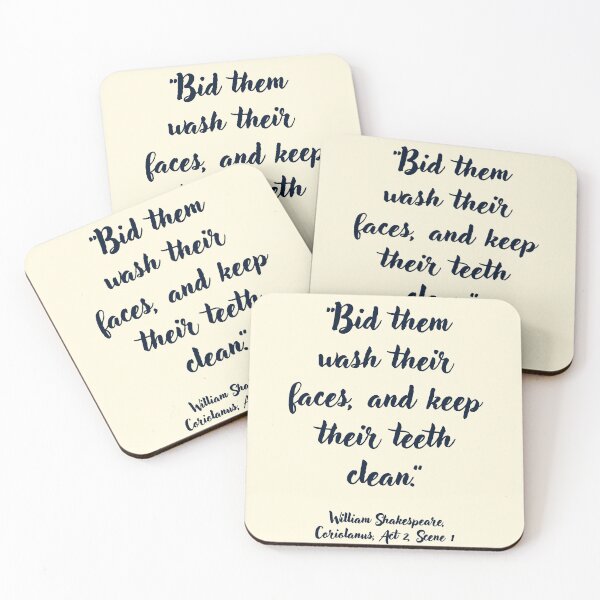 "Bid them
wash their
faces, and keep
teeth
"Bid them
wash their
faces, and keep
their teeth
clean."
"Bid them
wash their
faces, and keep
their teeth
clean."
William
Coriolanus,
"Bid them
wash their
faces, and keep
their teeth
clean."
William Shakespeare,
Coriolanus, Act 2, Scene 1